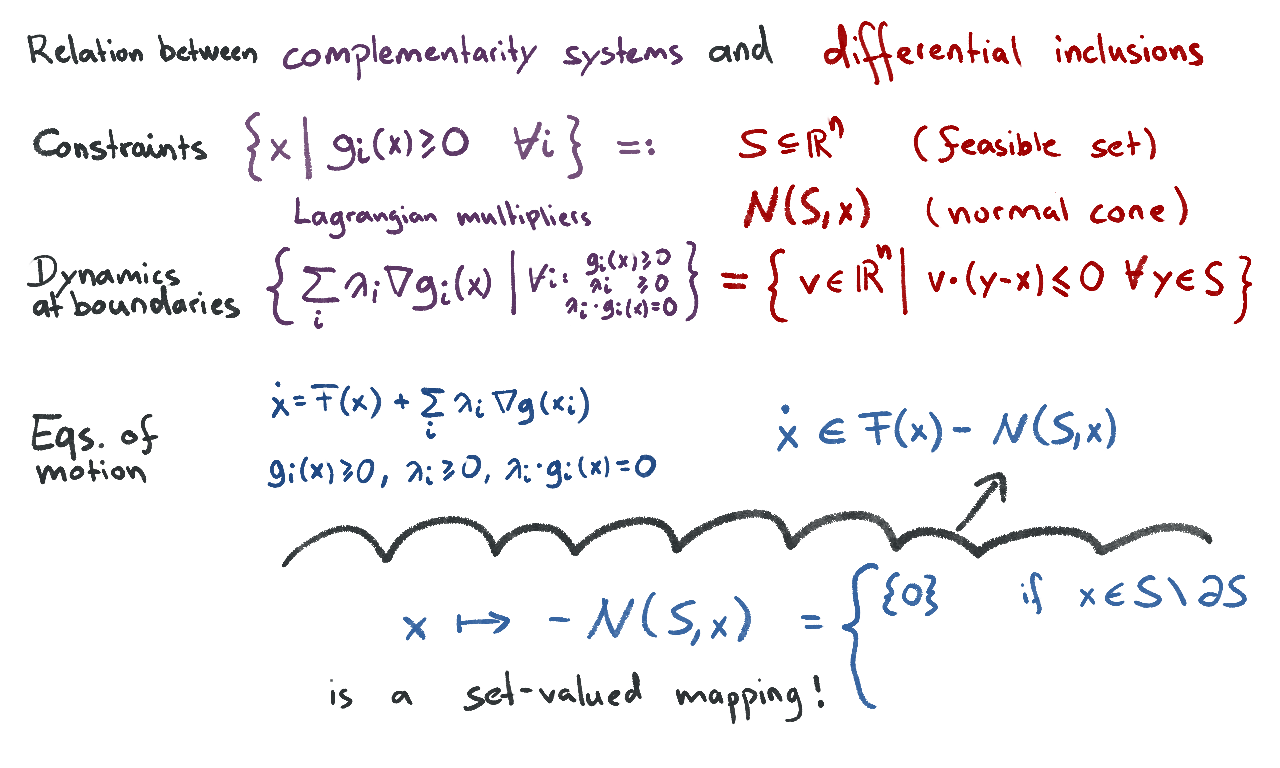 Relation between complementarity systems and differential inclusions
Constraints {x | gᵢ(x) ⩾ 0 ∀i} =: S ⊆ ℝⁿ (feasible set)
Lagrangian multipliers N(S,x) (normal cone)
Dynamics at boundaries { ∑ᵢ λᵢ ∇gᵢ(x) | ∀i: gᵢ(x) ⩾ 0 λᵢ ⩾ 0 λᵢ·gᵢ(x)=0 } = { v ∈ ℝⁿ | v·(y-x) ⩽ 0 ∀y ∈ S }
Eqs. of motion
ẋ = F(x) + ∑ᵢ λᵢ ∇g(xᵢ)
gᵢ(x) ⩾ 0, λᵢ ⩾ 0, λᵢ·gᵢ(x) = 0
ẋ ∈ F(x) - N(S,x)
x ↦ - N(S,x) = { {0} if x ∈ S \ ∂S
is a set-valued mapping!